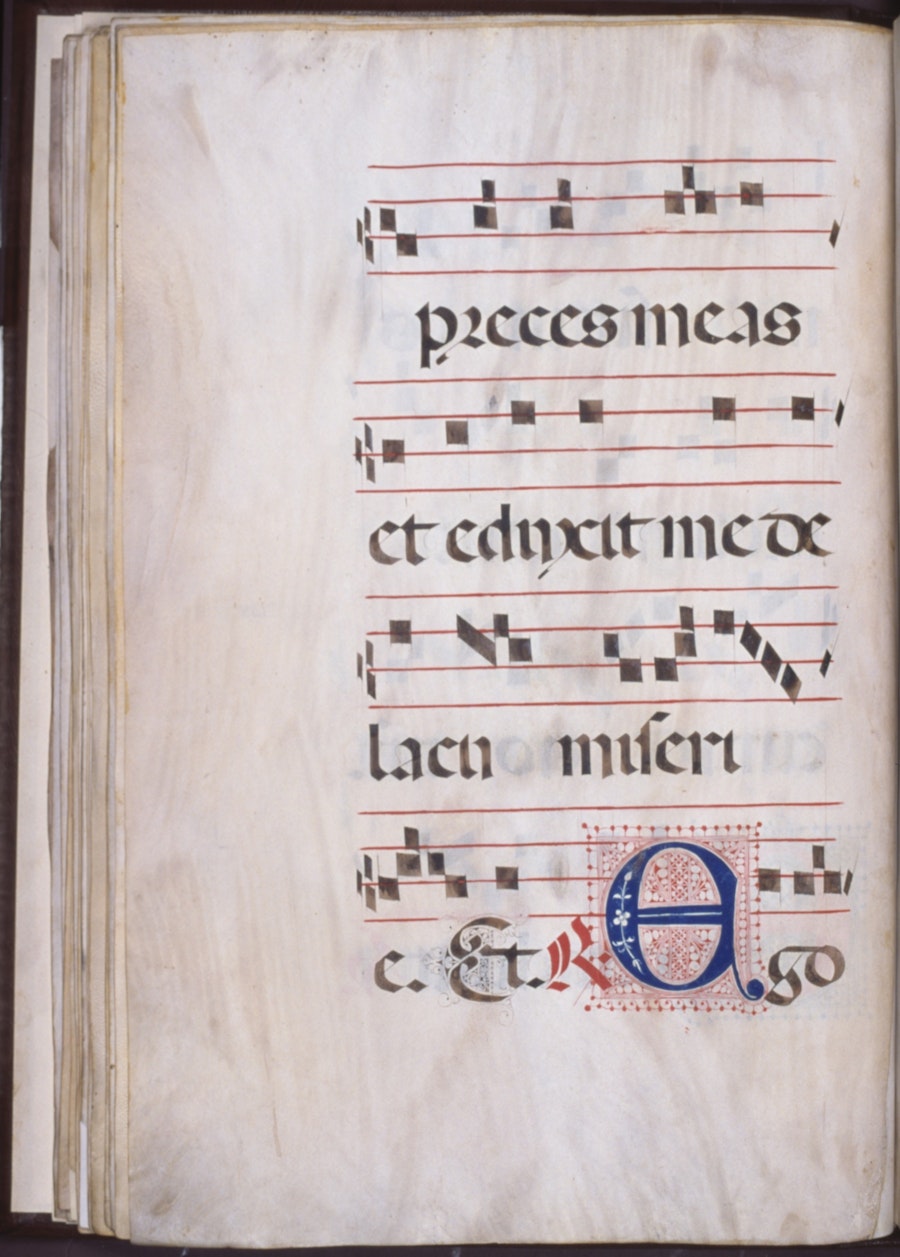 preces meas
et eduxit me de
lacu miseri
e. Et. R Ego